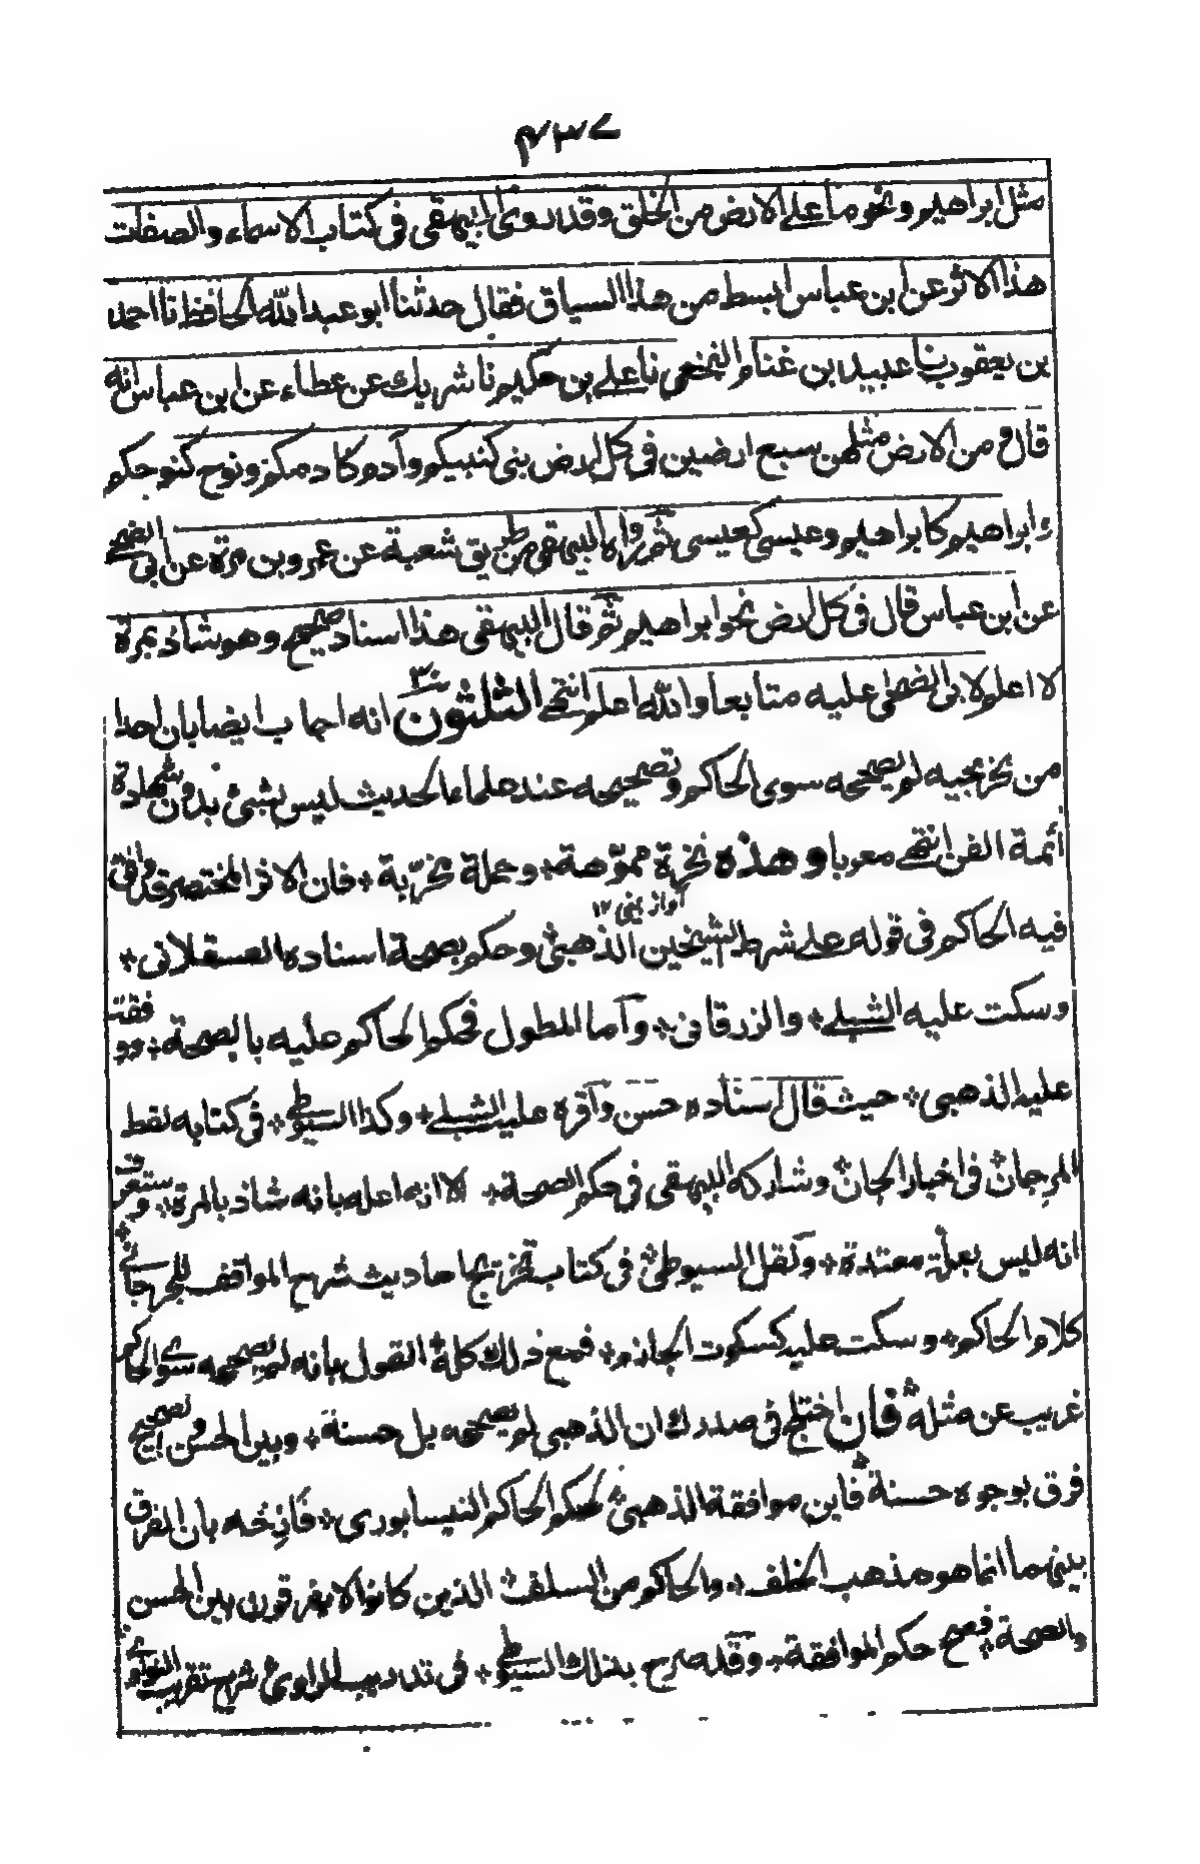 ٤٣٧
مثل ابراهيم ونحو ما على الارض من الخلق وقد روى البيهقى فى كتاب الاسماء والصفات
هذا الاثر عن ابن عباس ابسط من هذا السياق فقال حدثنا ابو عبد الله الحافظ نا احمد
بن يعقوب نا عبيد بن غنام النخعي نا على بن حكيم نا شريك عن عطاء عن ابن عباس انه
قال ومن الارض مثلهن سبع ارضين فى كل ارض نبى كنبيكم وآدم كادمكم ونوح كنوحكم
وابراهيم كابراهيم وعيسى كعيسى ثم رواه البيهقى من طريق شعبة عن عمرو بن مرة عن ابى الضحى
عن ابن عباس قال فى كل ارض نحو ابراهيم ثم قال البيهقى هذا اسناد صحيح وهو شاذ بمرة
لا اعلم لابى الضحى عليه متابعا والله اعلم انتهى الثلثون ٣٠ انه اجاب ايضا بان احدا
من مخرجيه لم يصححه سوى الحاكم وتصحيحه عند علماء الحديث ليس بشئ بدون شهادة
أئمة الفن انتهى معربا وهذه نخرة مموّهة + وجملة مخرّبة + فان الاثر المختصر قد وافق
آواز بينى ١٢
فيه الحاكم فى قوله على شرط الشيخين الذهبىّ وحكم بصحة اسناده العسقلانى +
وسكت عليه الشبلى + والزرقانى + وأما المطول فحكم الحاكم عليه بالصحة + ووفقه
عليه الذهبى + حيث قال اسناده حسن وأقره عليه الشبلى + وكذا السيوطى + فى كتابه لقط
المرجان فى اخبار الجان وشاركه البيهقى فى حكم الصحة + الا انه اعله بانه شاذ بالمرة + وستعرف
انه ليس بعلّة معتدة + ونقل السيوطىّ فى كتاب تخريج احاديث شرح المواقف للجرجانى +
كلام الحاكم + وسكت عليه كسكوت الجازم + فمع ذلك كله القول بانه لم يصححه سوى الحاكم
غريب عن مثله فان اختلج فى صدرك ان الذهبى لم يصححه بل حسنه + وبين الحسن والصحيح
فرق بوجوه حسنة فاين موافقة الذهبىّ لحكم الحاكم النيسابورى + فأزحه بان الفرق
بينهما انما هو مذهب الخلف + والحاكم من السلف الذين كانوا لا يفرقون بين الحسن
والصحة + فصح حكم الموافقة + وقد صرح بذلك السيوطى + فى تدريب الراوى شرح تقريب النواوى +